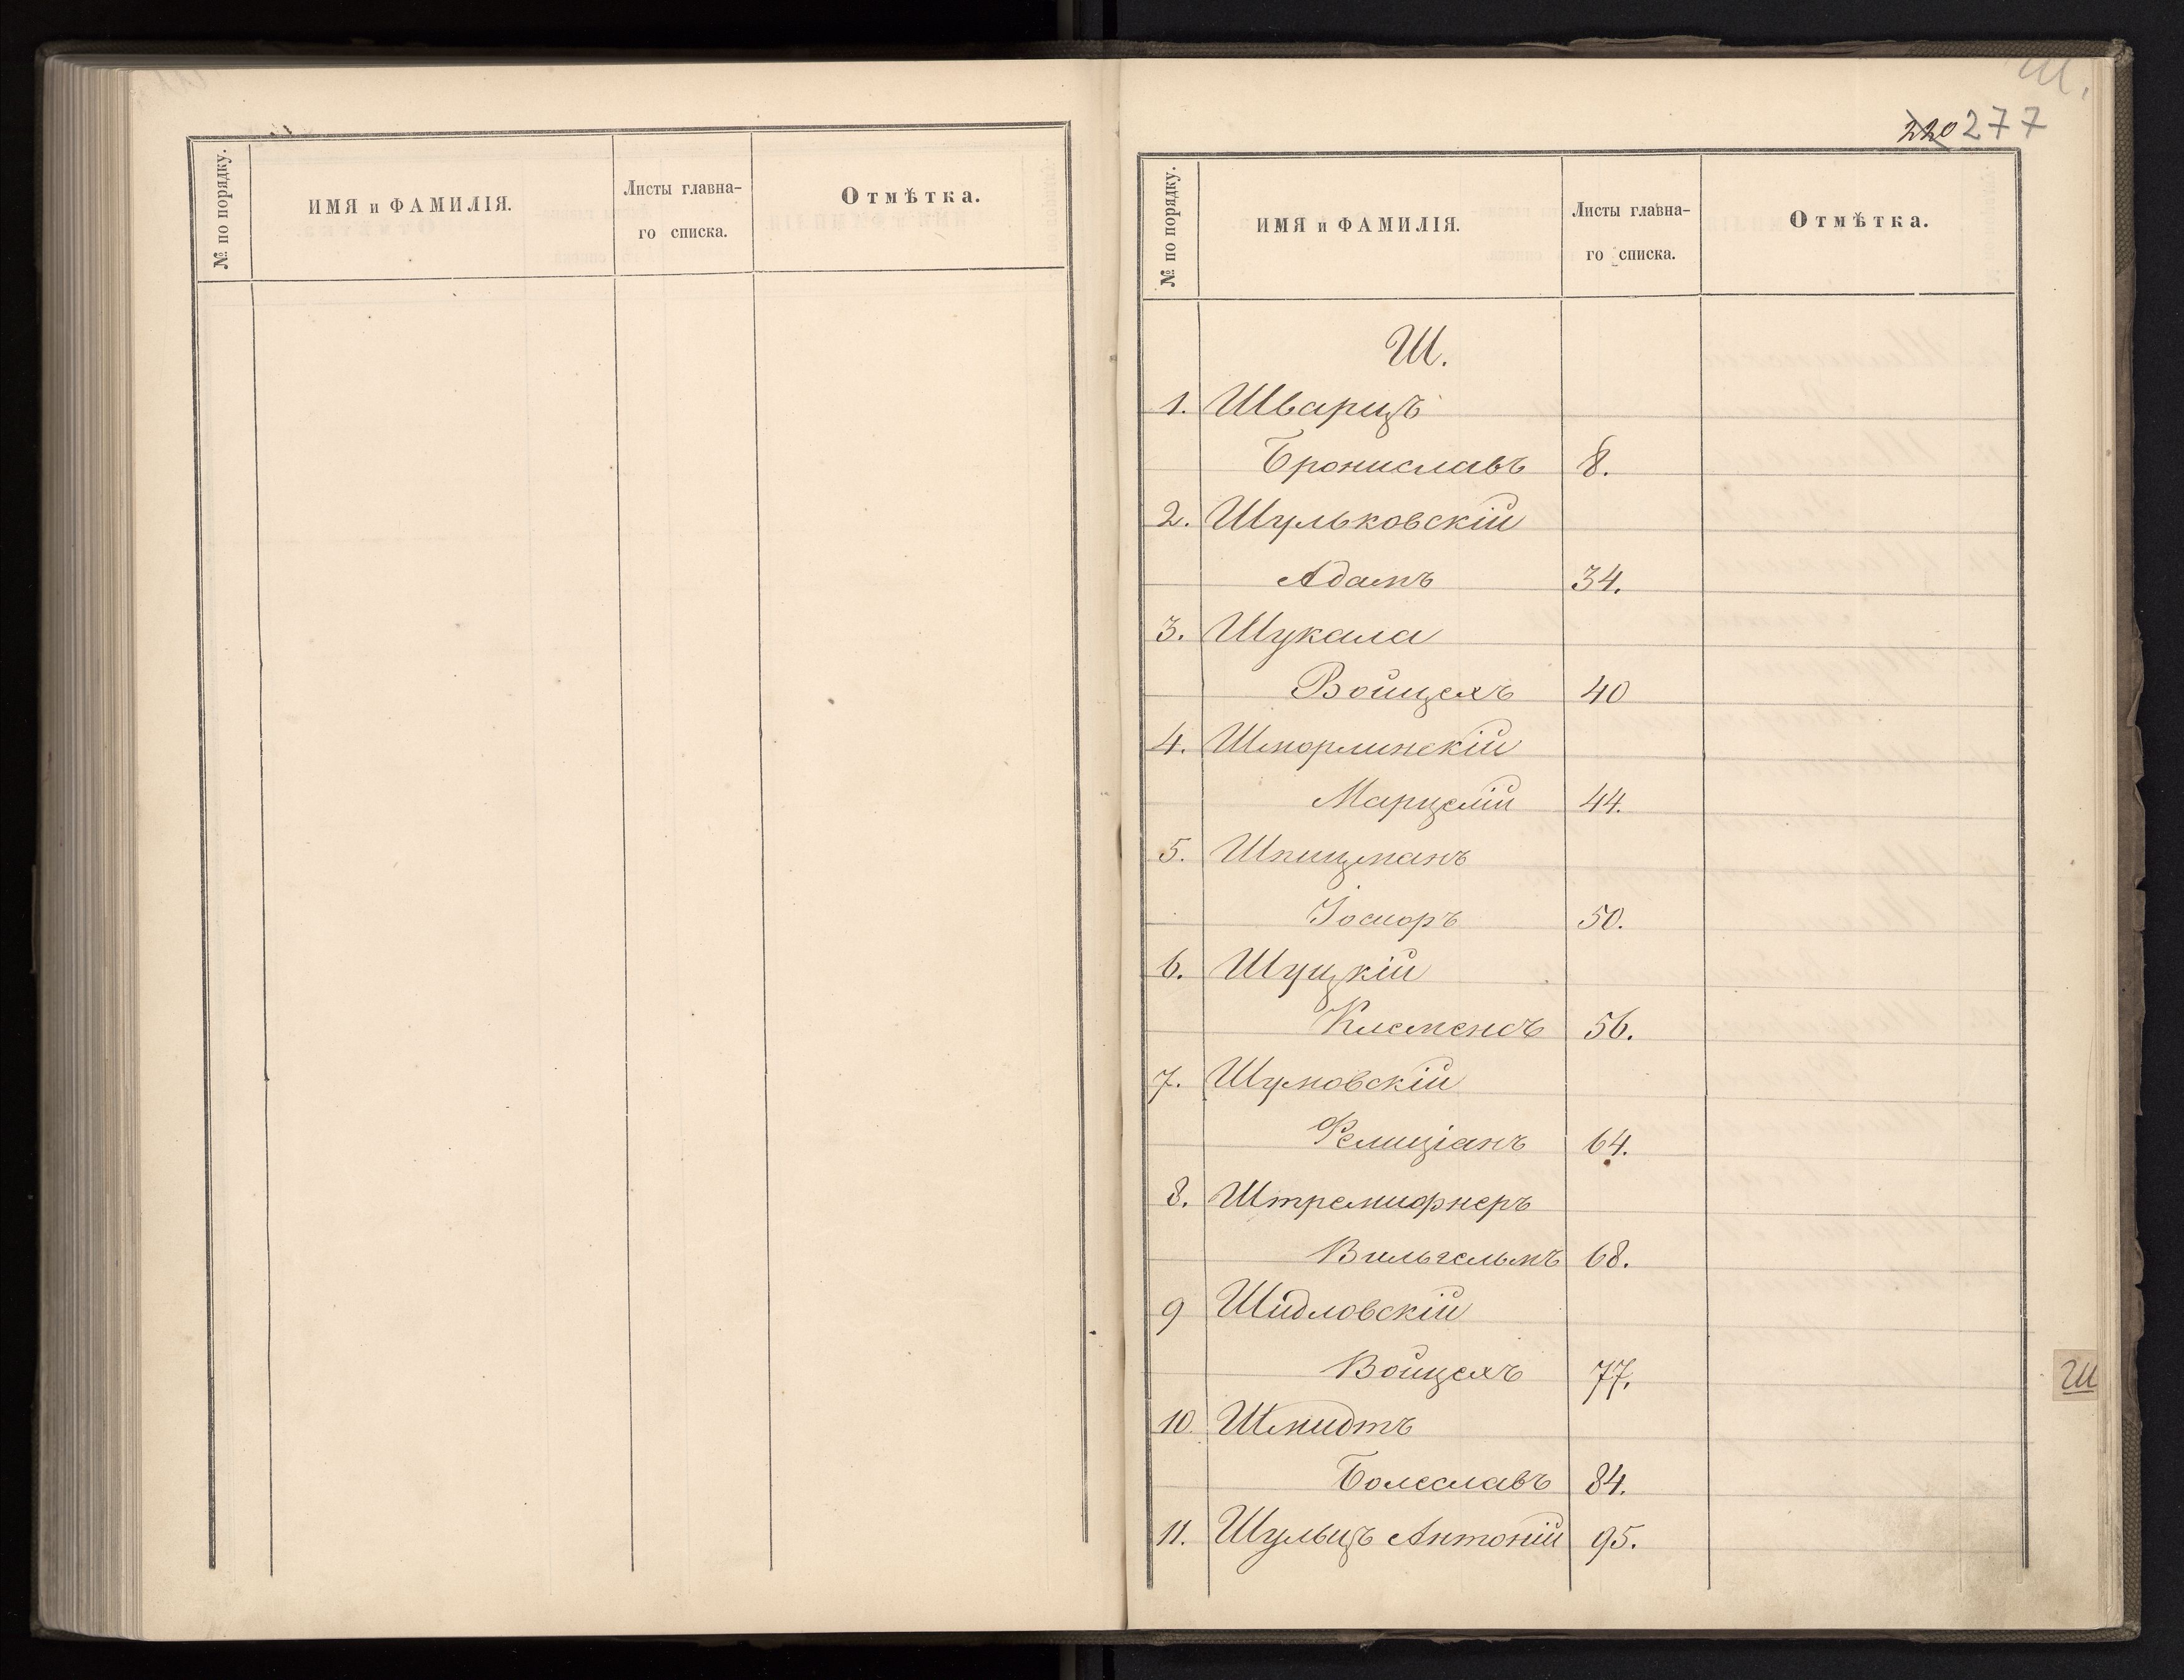 № по порядку.
ИМЯ и ФАМИЛІЯ.
Листы главна-
го списка.
Отмѣтка.
Ш.
220 277
№ по порядку.
ИМЯ и ФАМИЛІЯ.
Листы главна-
го списка.
Отмѣтка.
Ш.
1. Шварцъ
Брониславъ 8.
2. Шульковскій
Адамъ 34.
3. Шукала
Войцехъ 40
4. Шморлинскій
Марцелій 44.
5. Шпицманъ
50.
6. Шуцкій
Клеменсъ 56.
7. Шумовскій
Фелиціанъ 64.
8. Штремифнеръ
Вильгельмъ 68.
9 Шидловскій
Войцехъ 77.
10. Шмидтъ
Болеславъ 84.
11. Шульцъ Антоній 95.
Ш